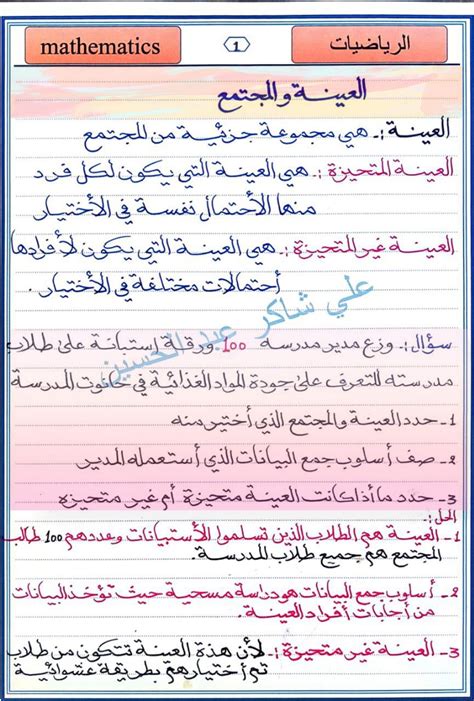 mathematics
1
الرياضيات
العينة والمجتمع
العينة :ـ هي مجموعة جزئية من المجتمع
العينة المتحيزة :ـ هي العينة التي يكون لكل فرد
منها الأحتمال نفسة في الأختيار
العينة غير المتحيزة :ـ هي العينة التي يكون لأفرادها
أحتمالات مختلفة في الأختيار .
علي شاكر عبد الحسنين
سؤال :ـ وزع مدير مدرسة 100 ورقة إستبانة على طلاب
مدرسته للتعرف على جودة المواد الغذائية في حانوت المدرسة
1- حدد العينة والمجتمع الذي أختير منه
2- صف أسلوب جمع البيانات الذي أستعمله المدير
3- حدد ما أذا كانت العينة متحيزة أم غير متحيزة
الحل :ـ
1- العينة هم الطلاب الذين تسلموا الأستبيانات وعددهم 100 طالب
المجتمع هم جميع طلاب المدرسة.
2- أسلوب جمع البيانات هو دراسة مسحية حيث تؤخذ البيانات
من أجابات أفراد العينة.
3- العينة غير متحيزة :ـ لأن هذة العينة تتكون من طلاب
تم أختيارهم بطريقة عشوائية